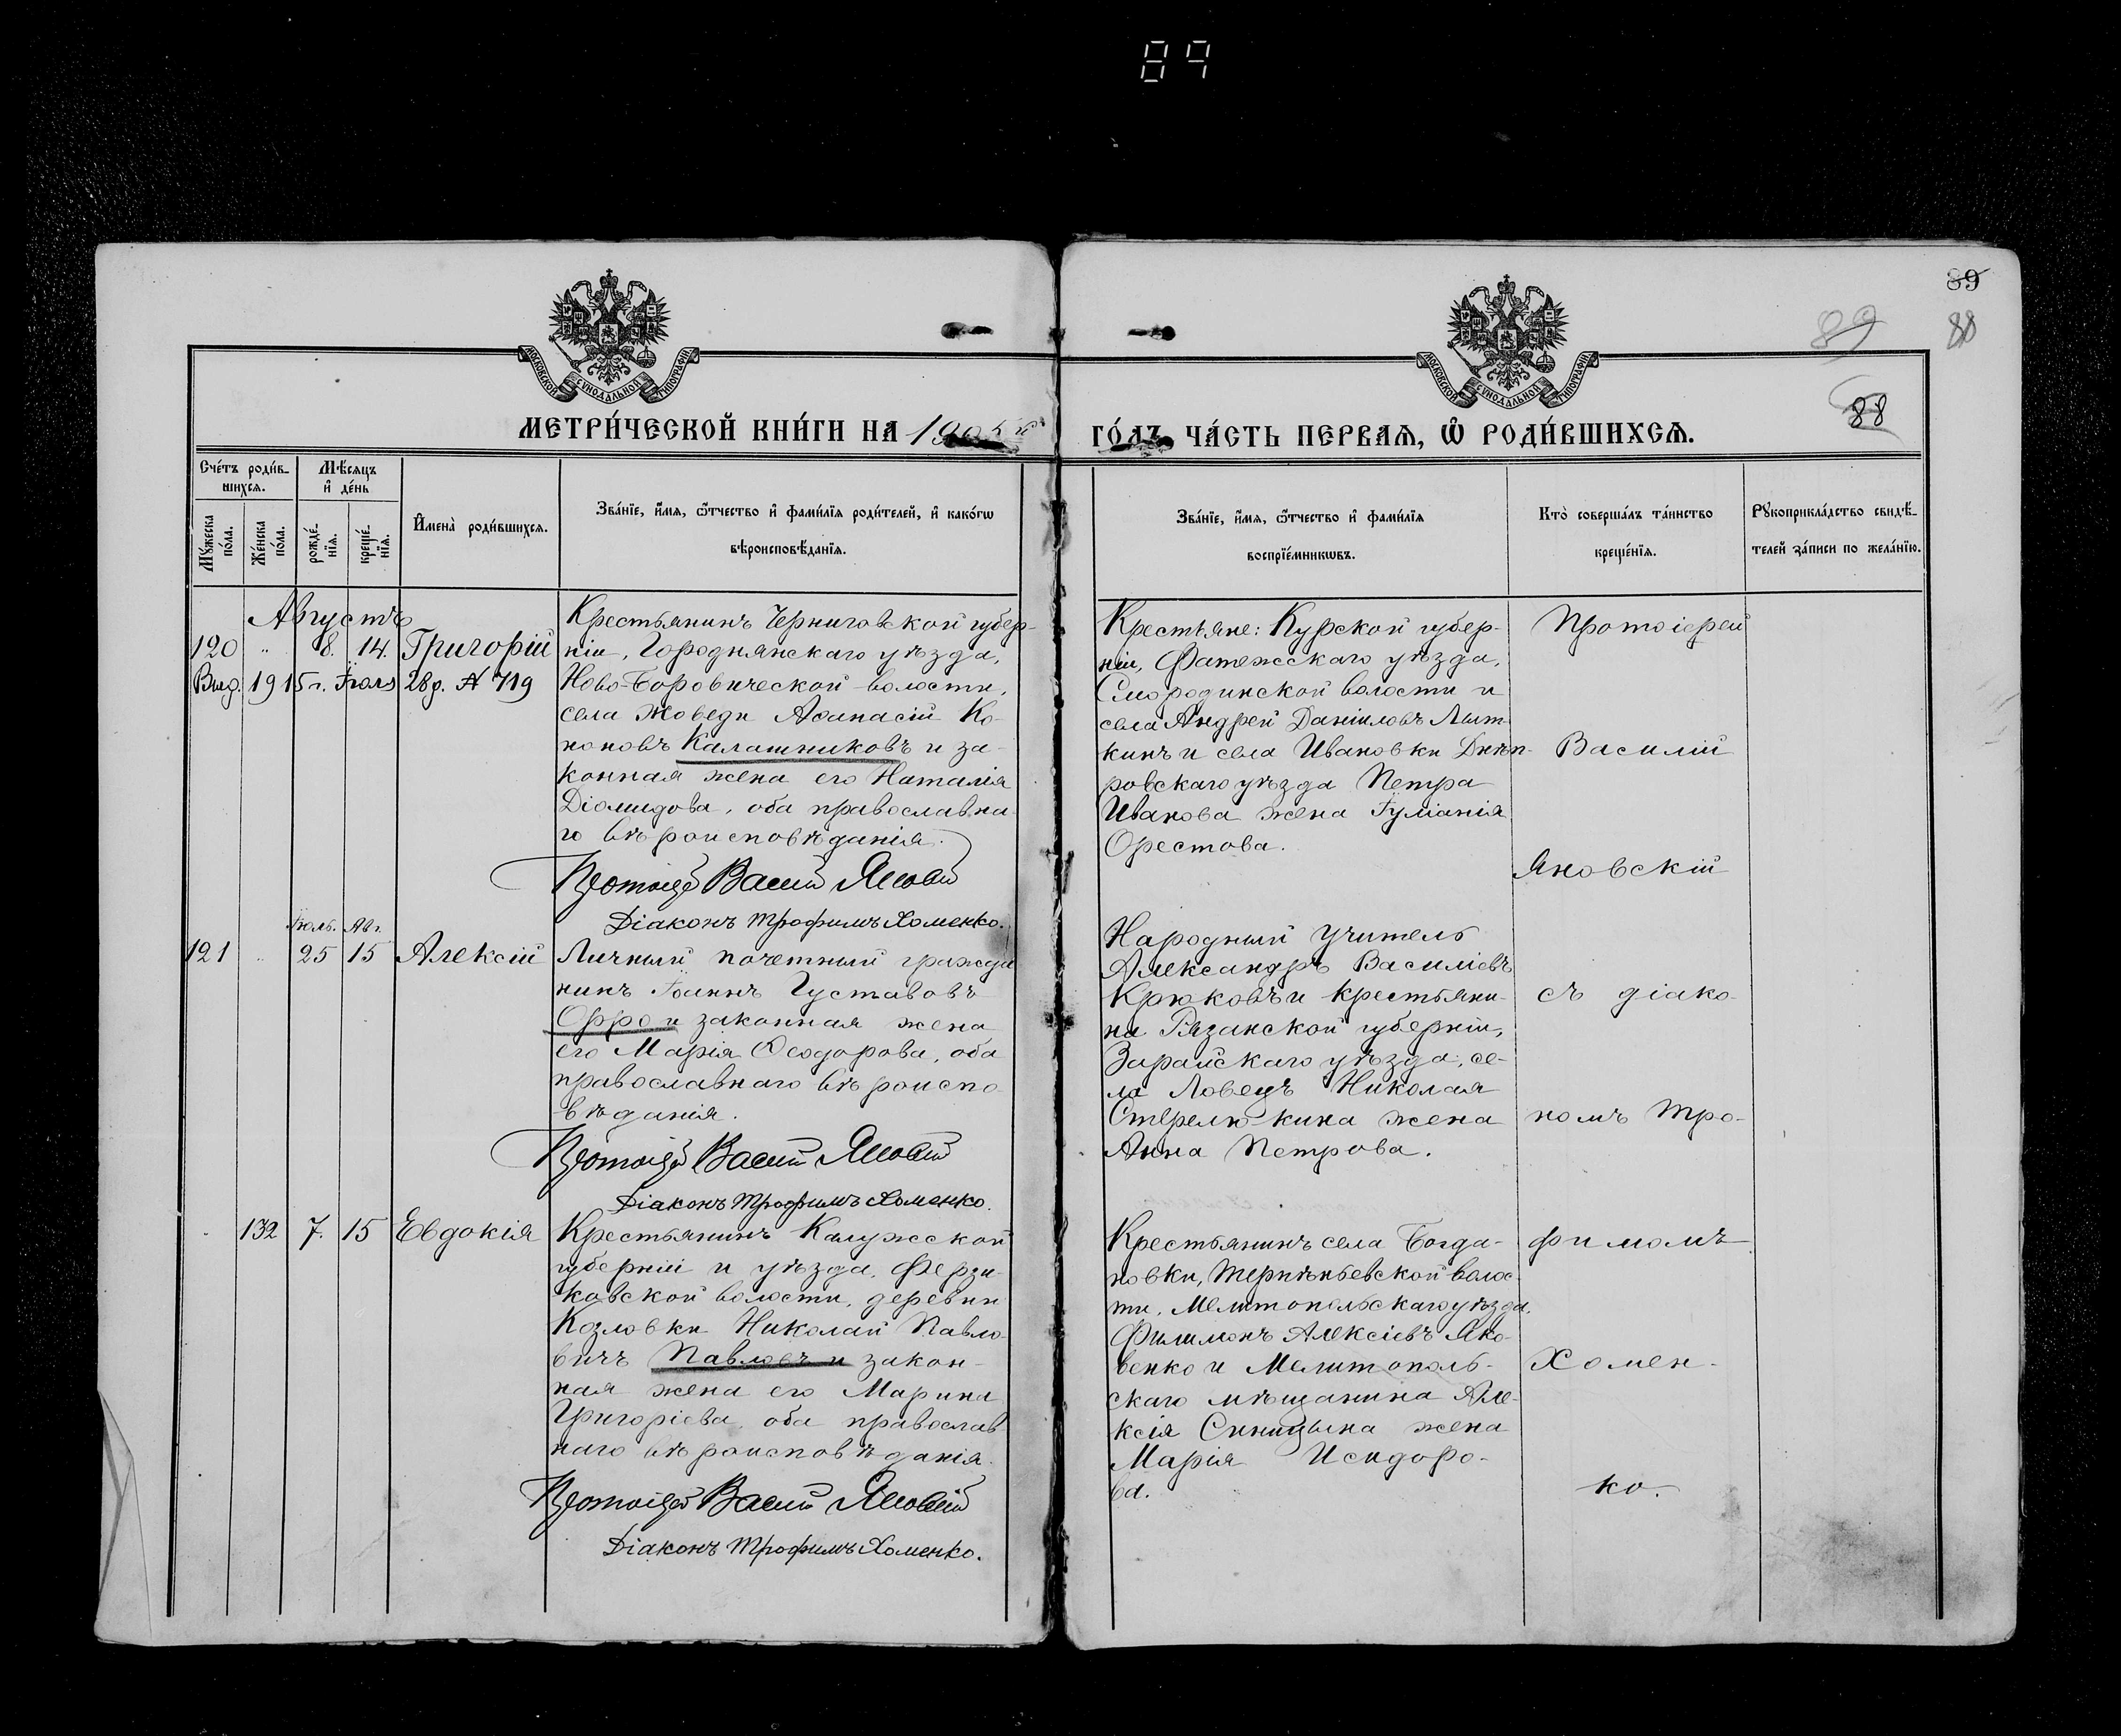 89
89
89
88
88
МОСКОВСКОЙ СѴНОДАЛЬНОЙ ТИПОГРАФІИ
МОСКОВСКОЙ СѴНОДАЛЬНОЙ ТИПОГРАФІИ
МЕТРИ́ЧЕСКОЙ КНИ́ГИ НА 1905й
ГО́ДЪ ЧА́СТЬ ПЕРВАѦ, Ѽ РОДИ́ВШИХСѦ.
Сче́тъ роди́в-
шихсѧ.
Мѣ́сѧцъ
и҆ де́нь
Мꙋ́жеска
по́ла.
Же́нска
по́ла.
рожде́-
нїѧ.
креще́-
нїѧ.
И҆мена̀ роди́вшихсѧ.
Зва́нїе, и҆́мѧ, ѻ҆́тчество и҆ фами́лїѧ роди́телей, и҆ како́гѡ
вѣроисповѣ́данїѧ.
Зва́нїе, и҆́мѧ, ѻ҆́тчество и҆ фами́лїѧ
воспрїе́мникѡвъ.
Кто̀ соверша́лъ та́инство
креще́нїѧ.
Рꙋкоприкла́дство свидѣ́-
телей за́писи по жела́нїю.
Августъ
120 " 8. 14. Григорій
Выд. 1915 г. Іюля 28 д. № 719
Крестьянинъ Черниговской губер-
ніи, Городнянскаго уѣзда,
Ново-Боровической волости,
села Жоведи Аѳанасій Ко-
ноновъ Калашниковъ и за-
конная жена его Наталія
Діомидова, оба православна-
го вѣроисповѣданія.
Протоіерей Василій Яновскій
Діаконъ Трофимъ Хоменко.
Крестьяне: Курской губер-
ніи, Фатежскаго уѣзда,
Смородинской волости и
села Андрей Даніиловъ Лыт-
кинъ и села Ивановки Днѣп-
ровскаго уѣзда Петра
Иванова жена Іуліанія
Орестова.
Протоіерей
Василій
Яновскій
Іюль. Авг.
121 " 25 15 Алексій
Личный почетный гражда
нинъ Іоаннъ Густавовъ
Орро и законная жена
его Марія Ѳеодорова, оба
православнаго вѣроиспо-
вѣданія.
Протоіерей Василій Яновскій
Діаконъ Трофимъ Хоменко.
Народный Учитель
Александръ Василіевъ
Крюковъ и крестьяни-
на Рязанской губерніи,
Зарайскаго уѣзда, се-
ла Ловецъ Николая
Стрелюкина жена
Анна Петрова.
съ діако-
номъ Тро-
132 7. 15 Евдокія
Крестьянинъ Калужской
губерніи и уѣзда, Ферзи-
ковской волости, деревни
Козловки Николай Павло-
вичъ Павловъ и закон-
ная жена его Марина
Григоріева, оба православ
наго вѣроисповѣданія.
Протоіерей Василій Яновскій
Діаконъ Трофимъ Хоменко.
Крестьянинъ села Богда-
новки, Терпѣньевской волос-
ти, Мелитопольскаго уѣзда,
Филимонъ Алексіевъ Яко-
венко и Мелитополь-
скаго мѣщанина Але-
ксія Синицына жена
Марія Исидоро-
ва.
фимомъ
Хомен-
ко.